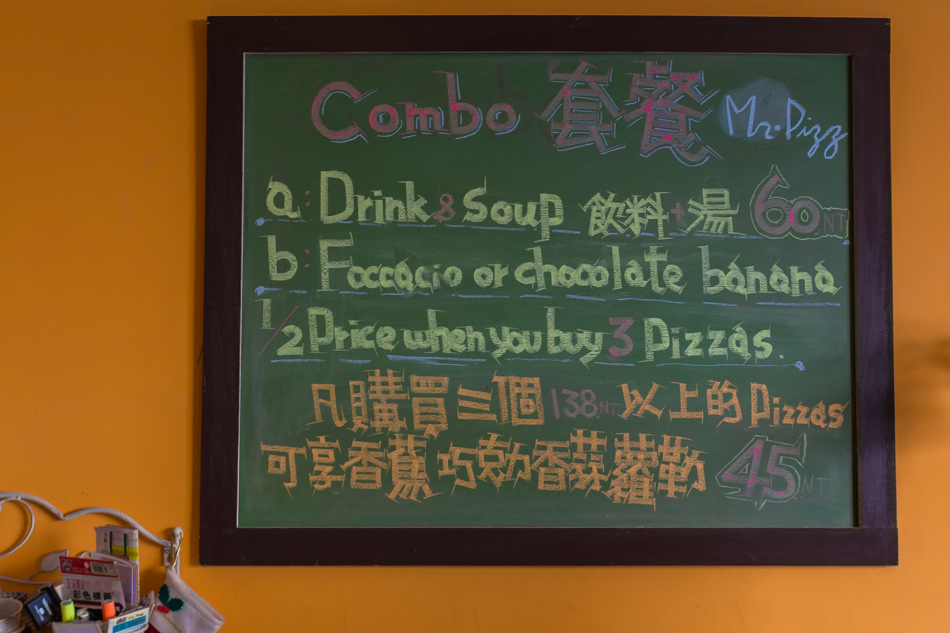 Combo 套餐 Mr. Pizz
a: Drink & Soup 飲料+湯 60NT
b: Foccacio or chocolate banana
1/2 Price when you buy 3 Pizzas.
凡購買三個138NT以上的Pizzas
可享香蕉巧克力香蒜蘿勒45NT
彩色